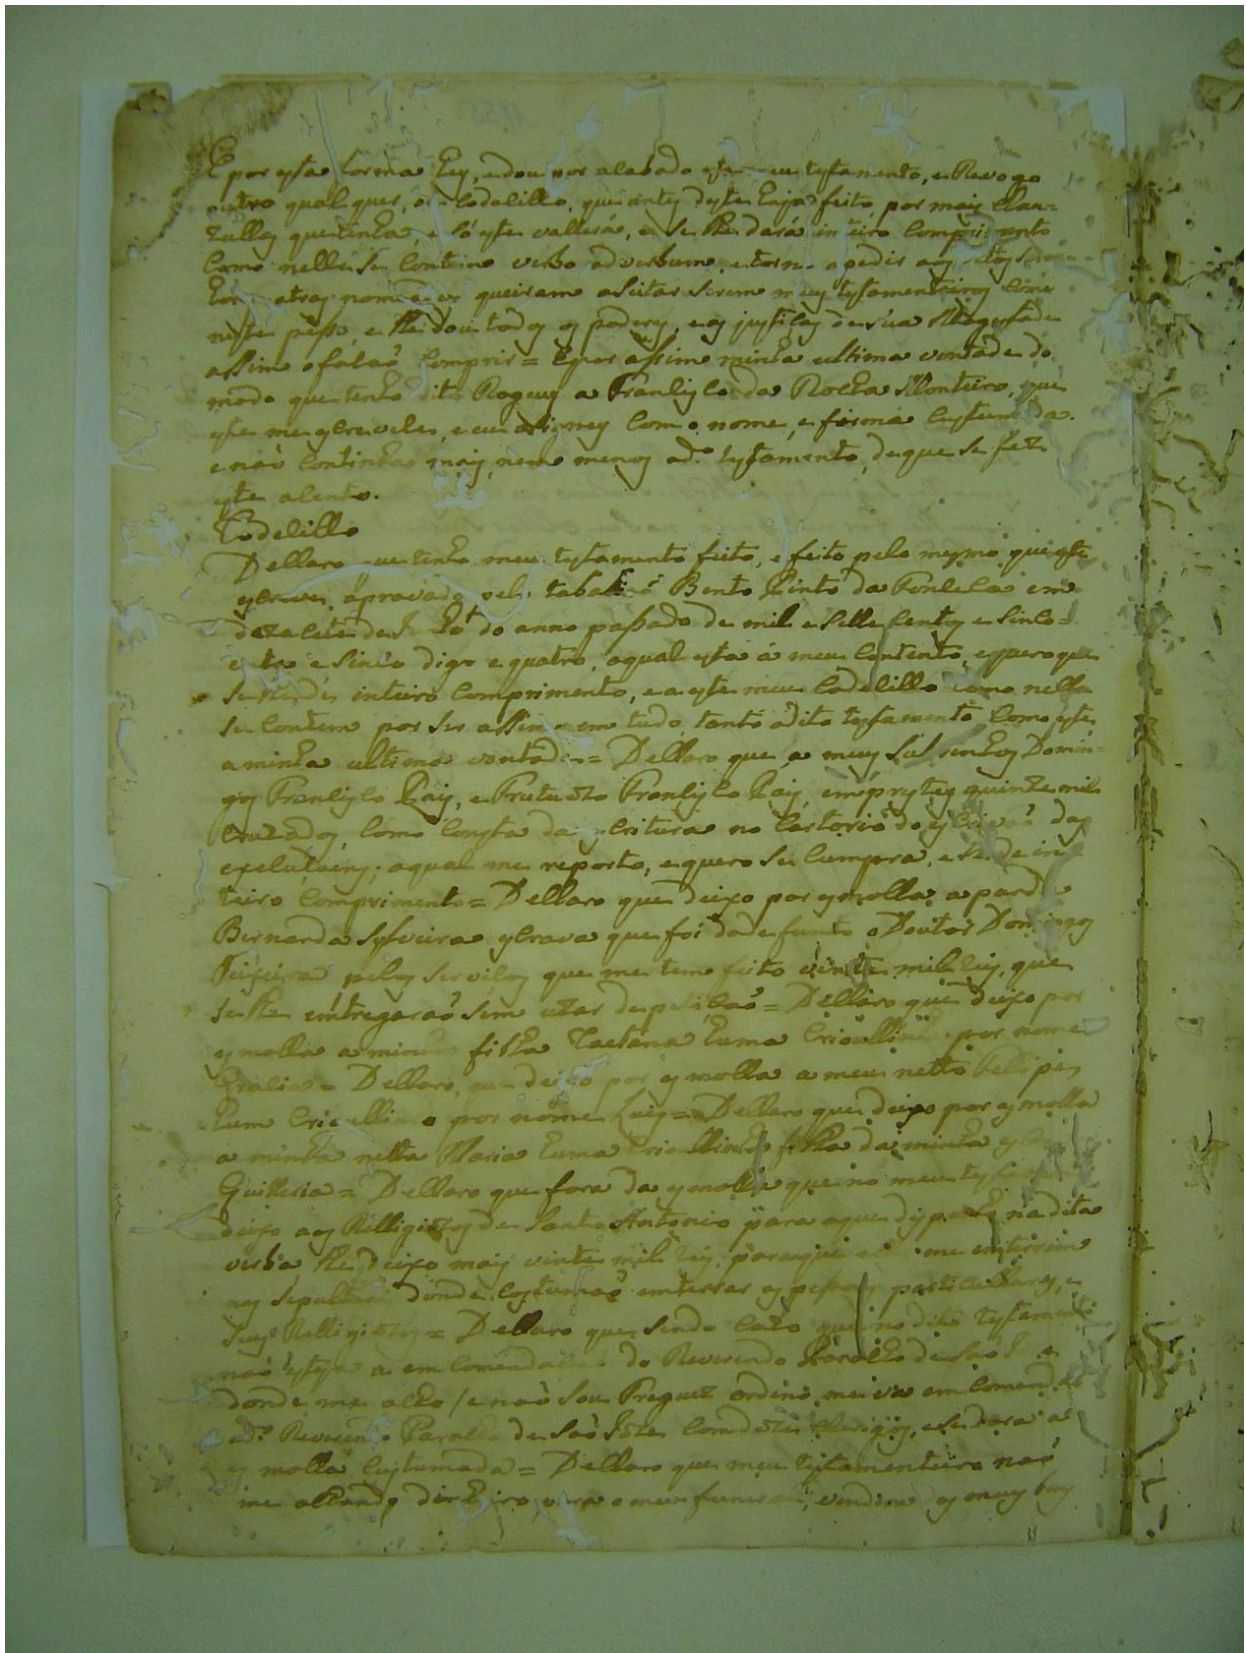 E por esta forma hey, e dou por acabado este meu testamento, e Revogo
outro qual quer, o codecillo, que antes deste haja feito, por mais clau-
zullas que tenha, e só este vallerá, e se lhe dará inteiro Comprimento
Como nelle se Contem verbo adverbum, e torno apedir aos
atras queiram aseitar serem meus testamenteiros Como
neste pesso, e lhe dou todos os poderes, e as justiças de Sua Magestade
assim o façaõ Comprir = E por assim ser minha ultima vontade do
modo que tenho dito Roguey a Francisco da Rocha Monteiro, que
este me escrevese, e eu asiney Com o nome, e firma Custumada.
e naõ Continha mais, nem menos o d.º testamento, de que se fez
este asento.
Codecillo
Declaro que tenho meu testamento feito, e feito pelo mesmo que este
escreve, aprovado pelo taballiaõ Bento Pinto da Fonceca em
dezacete de Junho do anno passado de mil e sette centos e sinco-
enta e sinco digo e quatro, o qual esta a meu Contento, e quero que
se lhe dé inteiro Comprimento, e a este meu Codecillo como nelle
se Contem por ser assim em tudo, tanto o dito testamento Como este
a minha ultima vontade = Declaro que a meus Domin-
gos Francisco Pais, e Frutuozo Francisco Pais, emprestey quinze mil
Cruzados, Como Consta da escritura no Cartorio do escrivaõ das
execuçoens; aqual me reporto, e quero se Cumpra, e se de in-
teiro Comprimento = Declaro que deixo por esmolla a parda
Bernarda Sylveira escrava que foi do defunto o Doutor Domingos
Teixeira pelos serviços que me tem feito vinte mil reis, que
se lhe entregaraõ sem uzar de petiçaõ = Declaro que deixo por
esmolla a minha filha Caetana huma Crioullinha por nome
= Declaro que deixo por esmolla a meu netto Fellipe
hum Crioullinho por nome Luis = Declaro que deixo por esmolla
a minha netta Maria huma Crioullinha filha da minha
Quitteria = Declaro que fora da esmolla que no meu testamento
deixo aos Relligiozos de Santo Antonio para o que disponho na dita
verba lhe deixo mais vinte mil reis, para que me enterrem
nas sepulturas donde Costumaõ enterrar as pessoas particullares, e
seus Relligiozos = Declaro que sendo cazo que no dito testamento
naõ esteja a em Comendaçaõ do Reverendo Parocho de Saõ
donde me acho / e naõ sou Freguez ordeno, me va em Comendar
o d.º Reverendo Parocho de Saõ Joze Com doze Clerigos, e se dara a
esmolla Custumada = Declaro que meu testamenteiro naõ
me achando dinheiro para o meu funeral, vendera dos meus bens